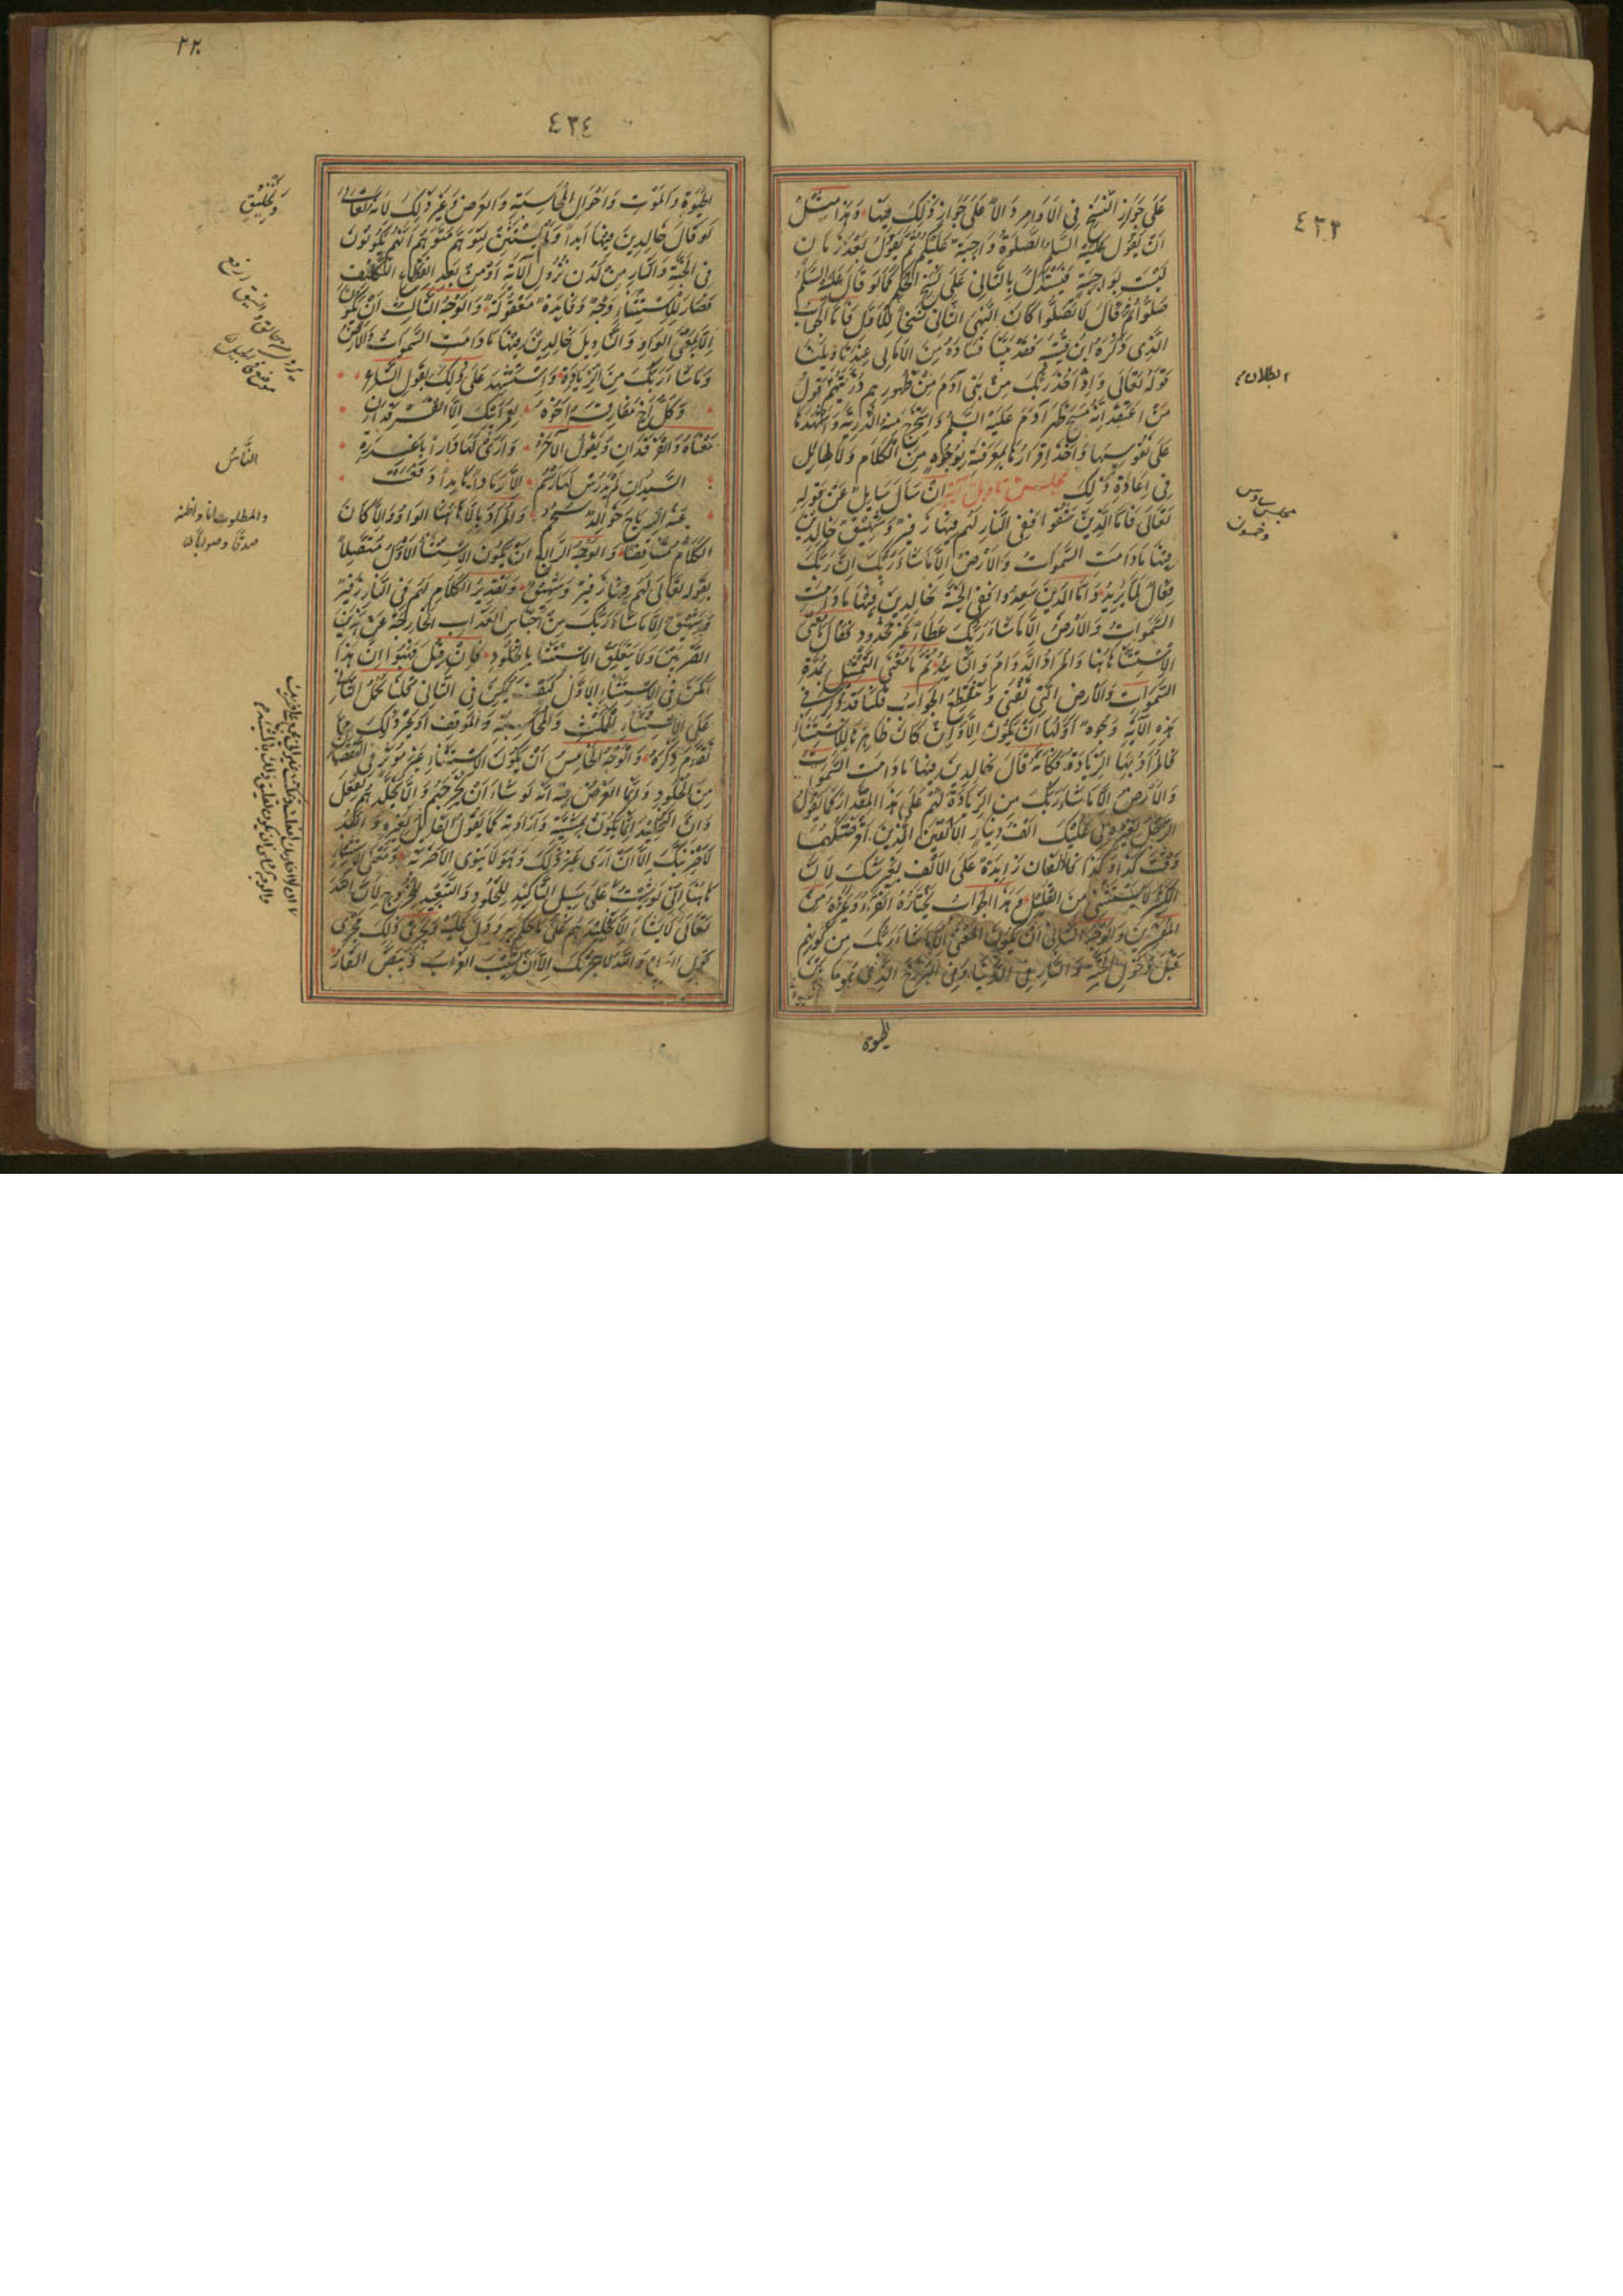 ٤٣٣
على جواز النسخ في الاوامر والا على جواز ذلك فيها وهذا مثل
ان يقول عليه السلم الصلوة واجبة عليكم ثم يقول بعد زمان
ليست بواجبة فيستدل بالثاني على نسخ الحكم كما لو قال عليه السلم
صلوا ثم قال لا تصلوا كان النهي الثاني ناسخا للاول فاما الجواب
الذي ذكره ابن قتيبه فقد بينا فساده من الامالي عند تاويلنا
قوله تعالى واذ اخذ ربك من بني آدم من ظهورهم ذريتهم قول
من اعتقد انه مسح ظهر آدم عليه السلم واستخرج منه الذرية واشهدها
على نفوسها واخذ اقرارها بمعرفته بوجوه من الكلام ولا طايل
في اعادة ذلك مجلس تاويل آية ان سال سايل عن قوله
تعالى فاما الذين شقوا ففي النار لهم فيها زفير وشهيق خالدين
فيها مادامت السموات والارض الا ماشاء ربك ان ربك
فعال لما يريد واما الذين سعدوا ففي الجنة خالدين فيها مادامت
السموات والارض الا ماشاء ربك عطاء غير مجذوذ فقال ما معنى
الاستثنا هاهنا والمراد الدوام والتابيد ثم ما معنى التمثيل بمدة
السموات والارض التي تفنى وتنقطع الجواب قلنا قد ذكر في
هذه الاية وجوه اولها ان يكون الا وان كان ظاهرها للاستثناء
فالمراد بها الزيادة فكانه قال خالدين فيها مادامت السموات
والارض الا ماشاء ربك من الزيادة لهم على هذا المقدار كما يقول
الرجل لغيره لي عليك الف دينار الا الفين الذين اقرضتكهما
وقت كذا وكذا فالالفان زايدة على الالف بغير شك لان
الكثير لا يستثنى من القليل وهذا الجواب يختاره الفراء وغيره من
المفسرين والوجه الثاني ان يكون المعنى الا ماشاء ربك من كونهم
قبل دخول الجنة والنار في الدنيا وفي البرزخ الذي هو ما بين
الحيوة
البطلان
مجلس سادس
وخمسون
٢٢٠
٤٣٤
الحيوة والموت واحوال المحاسبة والعرض وغير ذلك لانه تعالى
لو قال خالدين فيها ابدا ولم يستثن لتوهم متوهم انهم يكونون
في الجنة والنار من لدن نزول الآية او من بعد انقطاع التكليف
فصار للاستثناء وجه وفايدة معقولة والوجه الثالث ان يكون
الا بمعنى الواو والتاويل خالدين فيها مادامت السموات والارض
وماشاء ربك من الزيادة واستشهد على ذلك بقول الشاعر
وكل اخ مفارقه اخوه لعمر ابيك الا الفرقدان
معناه والفرقدان ويقول الآخر وارى لها دارا باغدرة
السيدان لم يدرس لها رسم الا رمادا هامدا دفعت
عنه الرياح خوالد سحم والمراد بالا هاهنا الواو والا كان
الكلام متناقضا والوجه الرابع ان يكون الاستثنا الاول متصلا
بقوله تعالى لهم فيها زفير وشهيق وتقدير الكلام لهم في النار زفير
وشهيق الا ماشاء ربك من اجناس العذاب الخارجة عن هذين
الضربين ولا يتعلق الاستثنا بالخلود فان قيل فهبوا ان هذا
امكن في الاستثناء الاول كيف يمكن في الثاني قلنا نحمل الثاني
على الاستثناء للمكث والمحاسبة والموقف او غير ذلك مما
تقدم ذكره والوجه الخامس ان يكون الاستثناء غير موثر في النقصان
من الخلود وانما الغرض فيه انه لو شاء ان يخرجهم والا يخلدهم لفعل
وان التخليد انما يكون بمشيته وارادته كما يقول القايل لغيره والله
لاضربنك الا ان ارى غير ذلك وهو لا ينوي الا ضربه ومعنى الاستثناء
هاهنا اني لو شئت على سبيل التاكيد للخلود والتبعيد للخروج لان الله
تعالى لا يشاء الا تخليدهم على ما حكم به ودل عليه ويجري ذلك مجرى
قول العرب والله لاهجرنك الا ان يشيب الغراب ويبيض القار
الناس